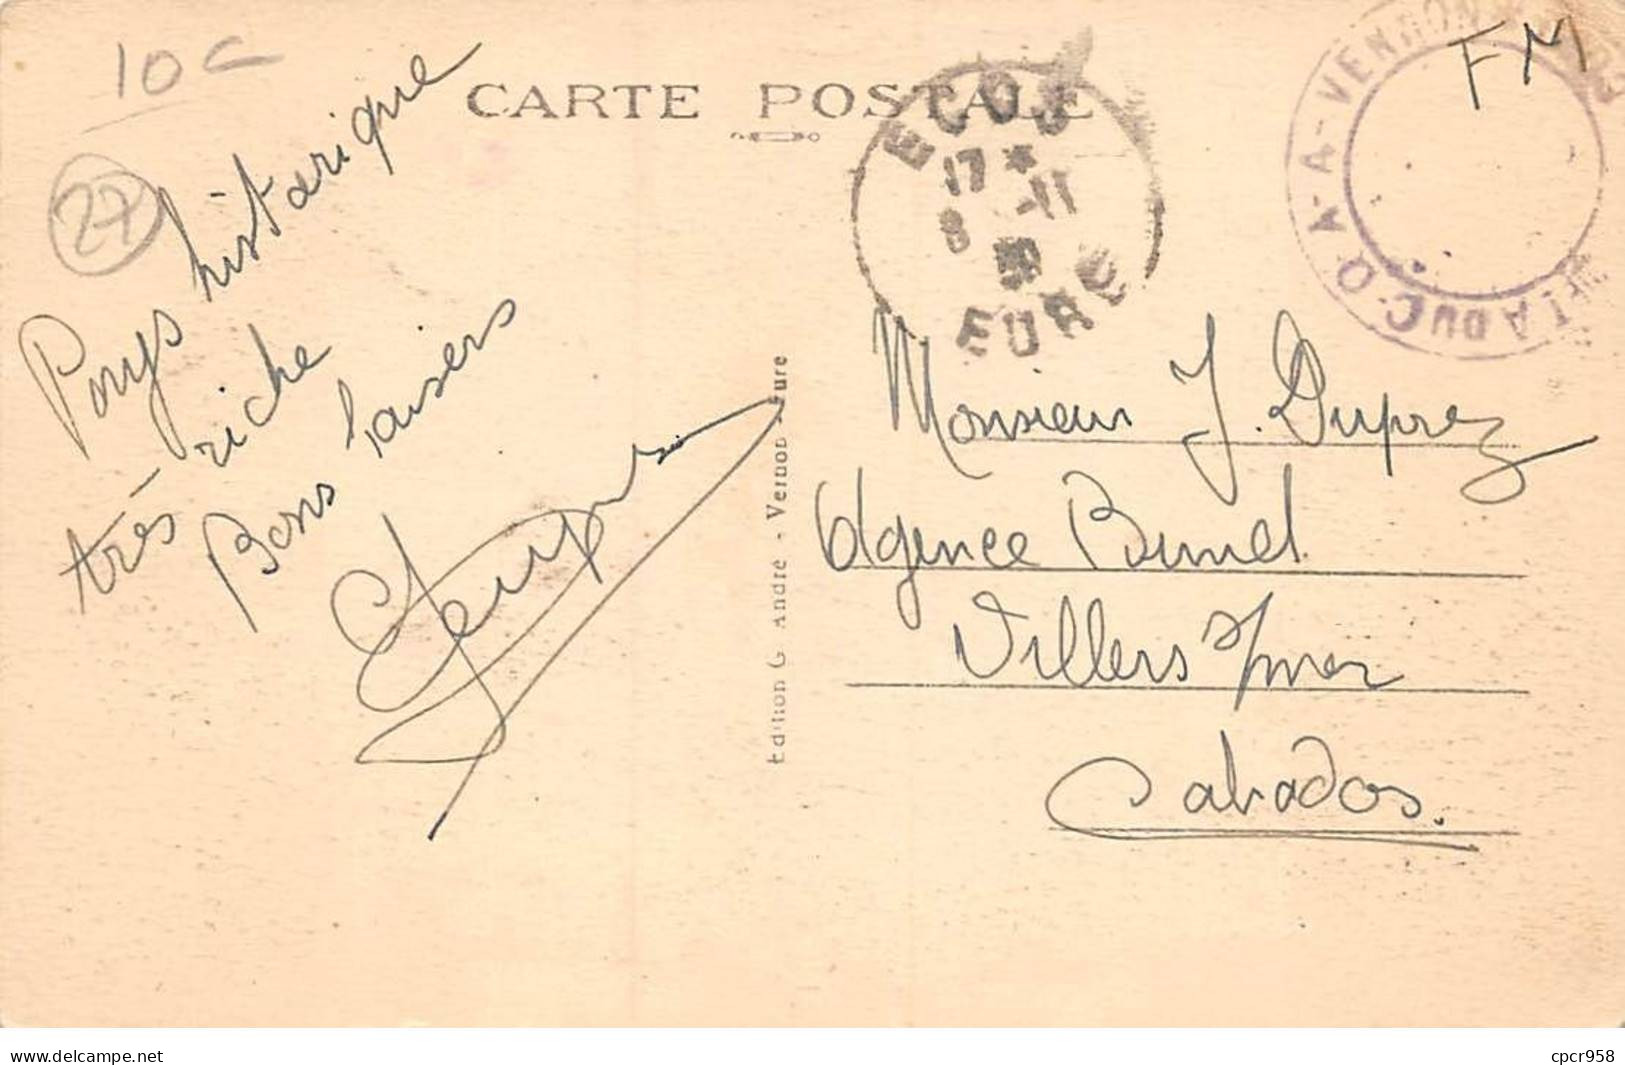 10 c
CARTE POSTALE
FM
ECOS
17 *
8 -11
EURE
27
Pays historique
très riche
Bons baisers
Edition G. André - Vernon - Eure
Monsieur J. Duprez
Agence Brunel
Villers s/mer
Calvados.
cpcr958
www.delcampe.net